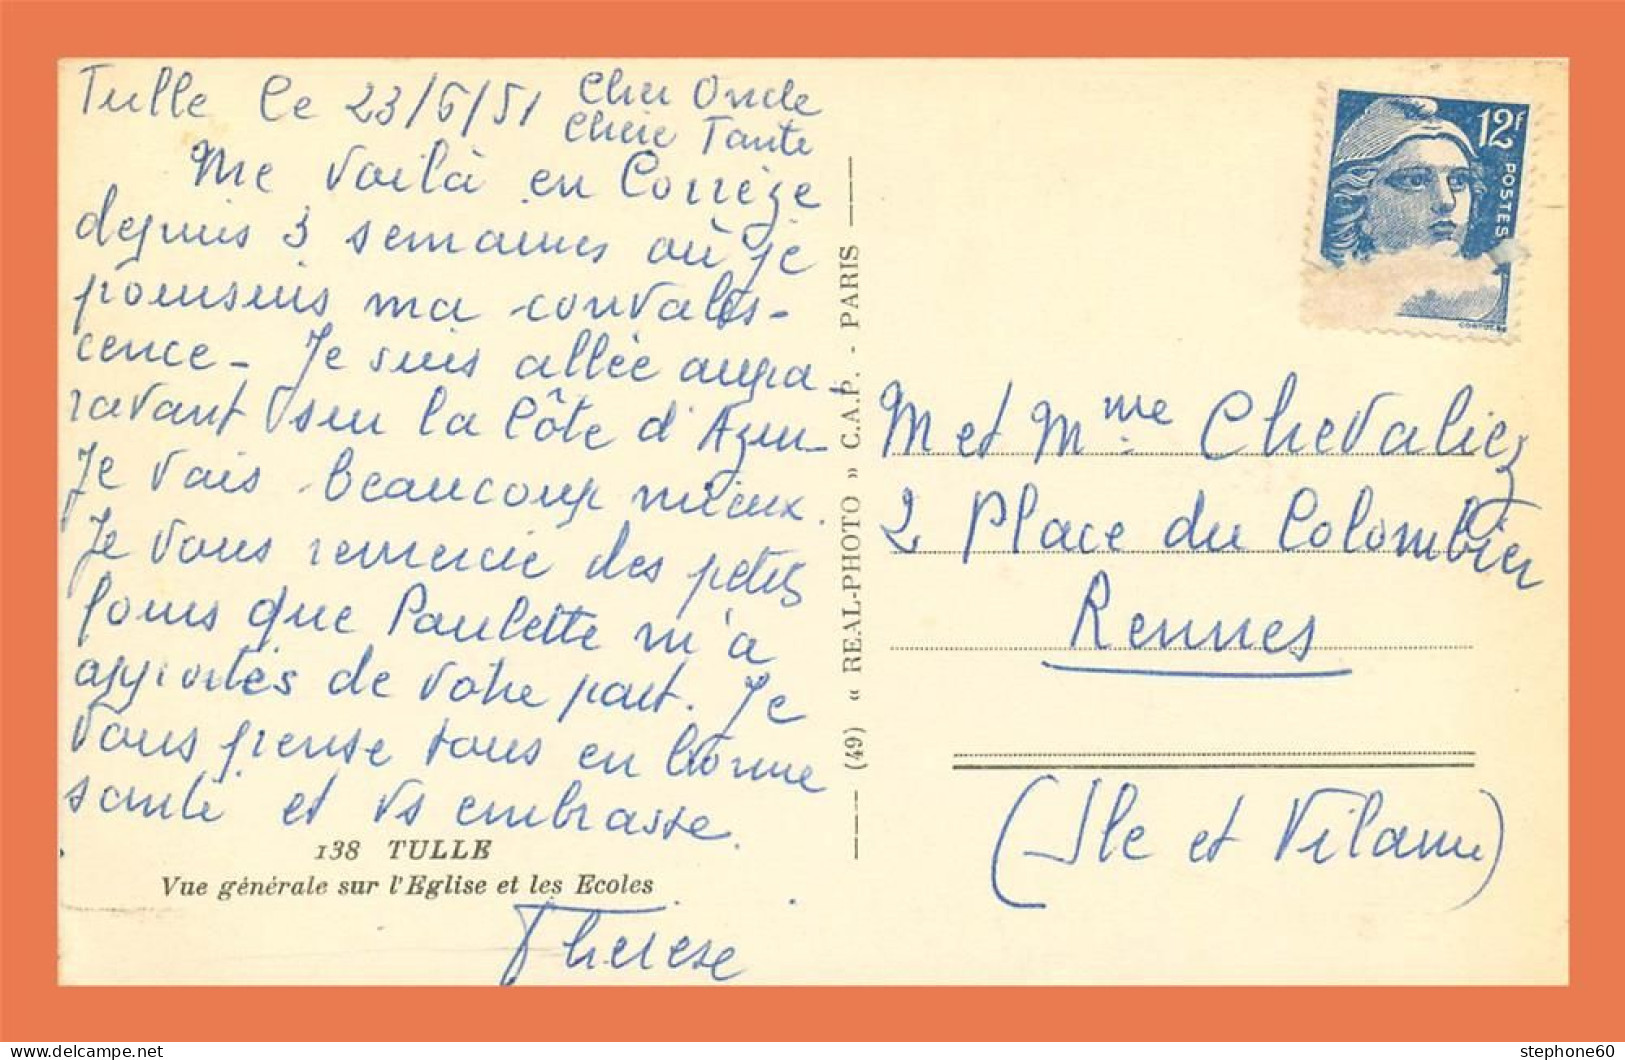 Tulle le 23/6/51 Cher Oncle
Chère Tante
Me voilà en Corrèze
depuis 3 semaines où je
poursuis ma convales-
cence - Je suis allée aupa
ravant sur la Côte d'Azur -
Je vais beaucoup mieux.
Je vous remercie des petits
fours que Paulette m'a
apportés de votre part. Je
vous pense tous en bonne
santé et vs embrasse.
138 TULLE
Vue générale sur l'Eglise et les Ecoles
Thérèse
(49) « REAL-PHOTO » C.A.P. - PARIS
12f
POSTES
M et Mme Chevalier
2 Place du Colombier
Rennes
(Ile et Vilaine)
stephone60